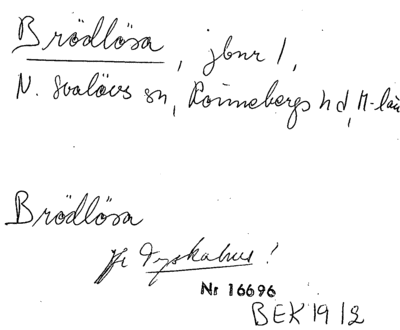 Brödlösa, jbnr 1,
N. Svalövs sn, Rönnebergs hd, M-län
Brödlösa
Jfr Tyskahus!
Nr 16696
BEK 1912